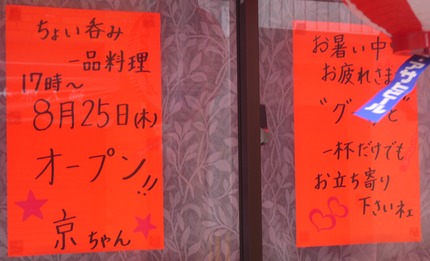 ちょい呑み
一品料理
17時～
8月25日(木)
オープン!!
京ちゃん
お暑い中
お疲れさま
"グ と
一杯だけでも
お立ち寄り
下さいネェ
アサヒビール